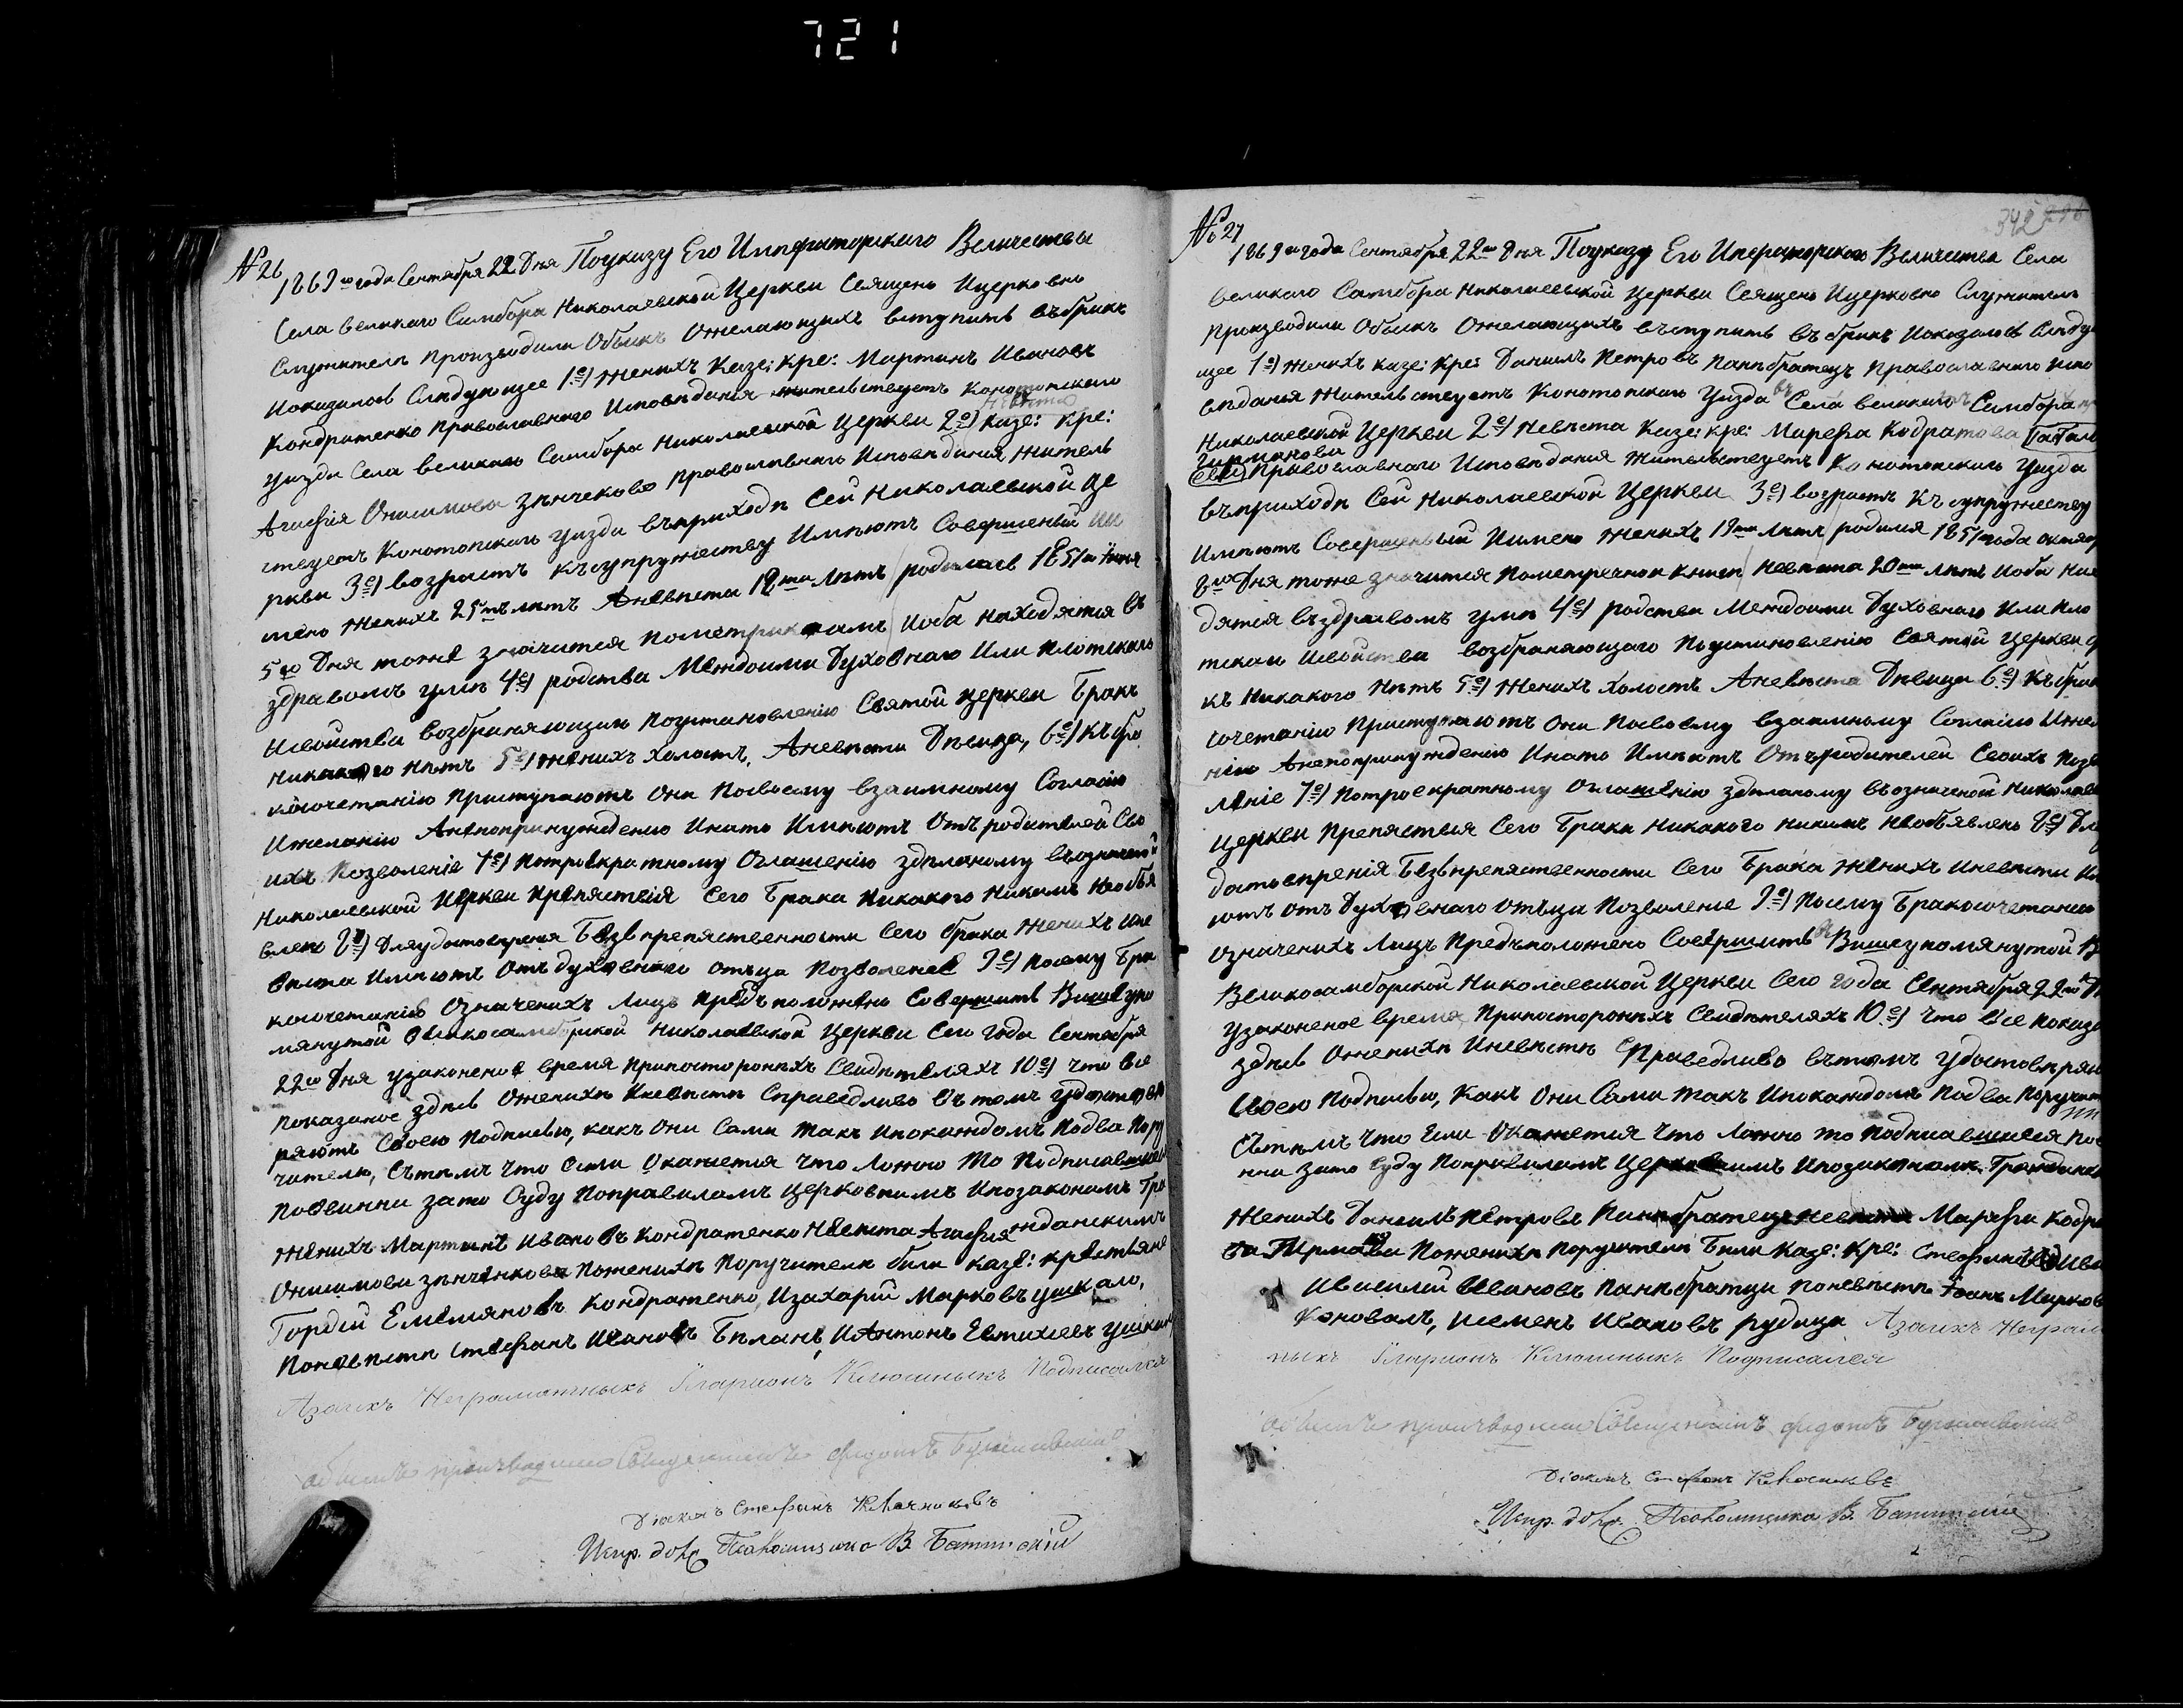 721
№ 26
1869го года Сентября 22 Дня Поуказу Его Императорскаго Величества
Села великаго Самбора Николаевской Церкви Священо Ицерковно
Служители производили Обыскъ Ожелающихъ вступить въ бракъ
Иоказалось Следующее 1е) Женихъ Казе: кре: Мартинъ Ивановъ
Кондратенко православнаго Исповеданія жительствуетъ Конотопскаго
Уезда Села великаго Самбора Николаевской Церкви 2е) Невеста Казе: кре:
Агафія Онисимова Зѣнчекова православнаго Исповѣданія Житель
ствуетъ Конотопскаго Уезда въприходѣ Сей Николаевской Це
ркви 3е) возрастъ къ супружеству Имѣютъ Совершеный Им
мено Женихъ 25ть лѣтъ Аневѣста 18ти лѣтъ / родилась 1851го
5го Дня тоже значится пометрикамъ / Иоба находятся въ
здравомъ умѣ 4е) родства Междоими Духовнаго Или плотскаго
Исвойства возбраняющаго поустановленію Святой Церкви Бракъ
никакого нѣтъ 5е) Женихъ холостъ, Аневѣста Дѣвица, 6е) Къ бра
косочетанію приступаютъ Они посвоему взаимному Согласію
Ижеланію Анепопринужденію Инато Имѣютъ Отъ родителей Сво
ихъ позволеніе 7е) потроекратному Оглашенію здѣланому въозначеной
Николаевской Церкви препятствія Сего Брака никакого никимъ необъя
влено 8е) Дляудостовѣренія Безъпрепятственности Сего брака Женихъ Ине
вѣста Имѣютъ Отъ духовнаго отъца позволеніе 9е) посему Бра
косочетаніе Означенихъ лицъ предъположено Совершить Вишеупо
мянутой Великосамборской Николаевской Церкви Сего года Сентября
22го Дня узаконеное время припостороннихъ Свидѣтеляхъ 10е) что все
показаное здѣсь Оженихѣ Иневѣстѣ Справедливо въ томъ удостовѣ
ряютъ Своею подписью, какъ Они Сами такъ Ипокаждомъ подва пору
чителю, Сътѣмъ что Если Окажется что ложно то подписавшиеся
повинни зато Суду поправиламъ Церковнимъ Ипозаконамъ Гра
Женихъ Мартинъ Ивановъ Кондратенко Невѣста Агафія жданскимъ
Онисимова Зѣнченкова поженихѣ поручители били казе: крестьяне
Гордій Емелияновъ Кондратенко, Изахарій Марковъ ушкало,
поневѣстѣ Стефанъ Ивановъ Бѣланъ, ИАнтонъ Евтихіевъ
Азаихъ Неграмотныхъ Иларионъ Ключныкъ Подписался
обыскъ производилъ Священникъ Федотъ
Діаконъ Стефанъ Ключниковъ
Испр. долж. Псаломщика В. Батинскій
342
№ 27
1869го года Сентября 22го Дня Поуказу Его Императорскаго Величества Села
великаго Самбора Николаевской Церкви Священо Ицерковно Служители
производили Обыскъ Ожелающихъ въступить въ бракъ Иоказалось Следу
щее 1е) Женихъ казе: кре: Данилъ Петровъ Панибратецъ православнаго Испо
вѣданія Жительствуетъ Конотопскаго Уезда въ Села великаго Самбора
Николаевской Церкви 2е) Невѣста Казе: кре: Марефа Кодратова
православнаго Исповѣданія Жительствуетъ Конотопскаго Уезда
въприходѣ Сей Николаевской Церкви 3е) возрастъ Къ супружеству
Имѣютъ Совершеный Иимено Женихъ 19ти лѣтъ / родился 1851года октяб
8го Дня тоже значится пометречной книги / Невѣста 20ти лѣтъ Иоба На
дятся въздравомъ умѣ 4е) родства Междоими Духовнаго Или пло
тскаго Исвойства возбраняющаго поустановленію Святой Церкви
къ никакого нѣтъ 5е) Женихъ холостъ Аневѣста Дѣвица 6е) Къ брак
сочетанію приступаютъ Они посвоему взаимному Согласію Ижел
нію Анепопринужденію Инато Имѣютъ Отъродителей Своихъ позв
леніе 7е) потроекратному Оглашенію здѣланому въозначеной Николаев
Церкви препятствія Сего Брака никакого никимъ необъявлено 8е) Дл
достовѣренія Безъпрепятственности Сего Брака Женихъ Иневѣста
ютъ отъ Духовнаго отъца позволеніе 9е) посему Бракосочетание
означенихъ лицъ предъположено Совершить въ Вишеупомянутой
Великосамборской Николаевской Церкви Сего года Сентября 22го
узаконеное время припостороннихъ Свидѣтеляхъ 10е) что все показа
здѣсь Оженихѣ Иневѣстѣ Справедливо вътомъ удостовѣряю
Своею подписью, какъ Они Сами такъ Ипокаждомъ подва поручит
Сътѣмъ что Если Окажется что ложно то подписавшиеся пов
нни зато Суду поправиламъ Церковнимъ Ипозаконамъ Гражданск
Женихъ Данилъ Петровъ Панибратецъ невѣста Марефа Кодра
поженихѣ поручители Били Казе: кре: Стефанъ
Ивасилій Ивановъ Панибратци поневѣстѣ Іоанъ Марков
Коновалъ, Исеменъ Ивановъ рудица Азаихъ Неграмо
ныхъ Иларионъ Ключныкъ Подписался
обыскъ производилъ Священникъ Федотъ
Діаконъ Стефанъ Ключниковъ
Испр. долж. Псаломщика В. Батинскій